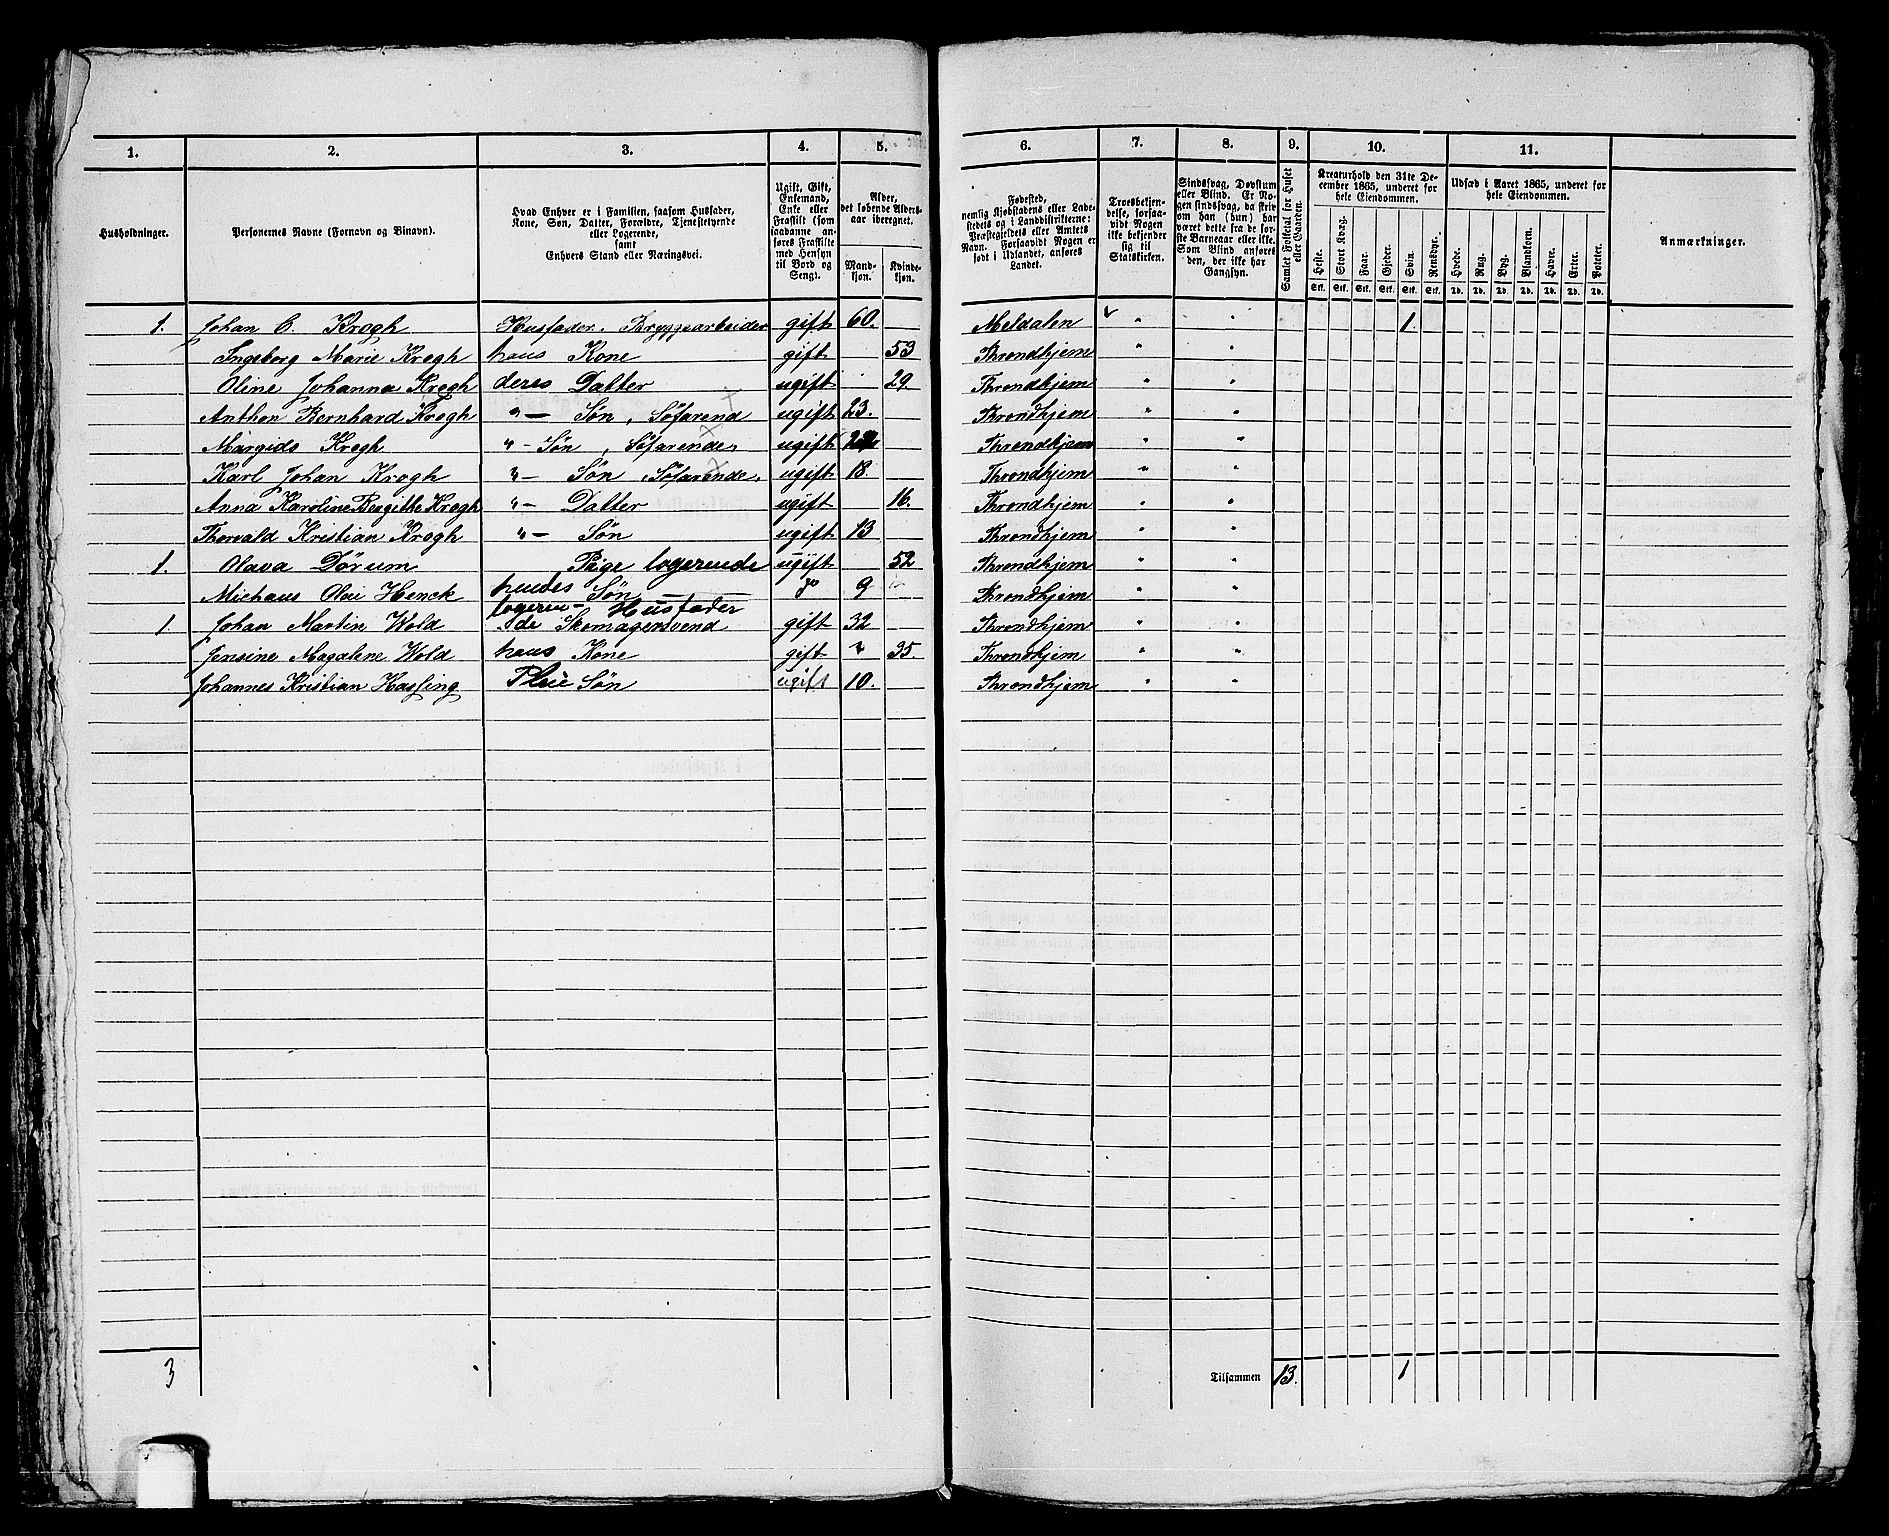 1. 2. 3. 4. 5. 6. 7. 8. 9. 10. 11.
Husholdninger.
Personernes Navne (Fornavn og Binavn).
Hvad Enhver er i Familien, saasom Husfader, Kone, Søn, Datter, Forældre, Tjenestetyende eller Logerende, samt Enhvers Stand eller Næringsvei.
Ugift, Gift, Enkemand, Enke eller Fraskilt (som saadanne anføres Fraskilte med Hensyn til Bord og Seng).
Alder, det løbende Aldersaar iberegnet.
Mandkjøn. Kvindekjøn.
Fødested, nemlig Kjøbstadens eller Ladestedets og i Landdistrikterne: Præstegjeldets eller Amtets Navn. Forsaavidt Nogen er født i Udlandet, anføres Landet.
Troesbekjendelse, forsaavidt Nogen ikke bekjender sig til Statskirken.
Sindssvag, Døvstum eller Blind. Er Nogen sindssvag, da skrives om han (hun) har været dette fra de første Barneaar eller ikke. Som Blind anføres den, der ikke har Gangsyn.
Samlet Folketal for Huset eller Gaarden.
Kreaturhold den 31te December 1865, underet for hele Eiendommen.
Heste. Stort Kvæg. Faar. Gjeder. Sviin. Rensdyr.
Stk. Stk. Stk. Stk. Stk. Stk.
Udsæd i Aaret 1865, underet for hele Eiendommen.
Hvede. Rug. Byg. Blandkorn. Havre. Erter. Poteter.
Td. Td. Td. Td. Td. Td. Td.
Anmærkninger.
1. Johan C. Krogh Husfader. Bryggearbeider gift 60. Meldalen " " 1.
Ingeborg Marie Krogh hans Kone gift 53 Throndhjem " "
Oline Johanna Krogh deres Datter ugift 29 Throndhjem " "
Anthon Bernhard Krogh " — Søn, Søfarend ugift 23. Throndhjem " "
Krogh " — Søn, Søfarende, ugift Throndhjem " "
Karl Johan Krogh " — Søn, Søfarende, ugift 18 Throndhjem " "
Anna Karoline Bergithe Krogh " — Datter ugift 16. Throndhjem " "
Thorvald Kristian Krogh " — Søn ugift 13 Throndhjem " "
1. Olava Dørum Pige logerende ugift 52 Throndhjem " "
Olai Henck hendes Søn 9 Throndhjem " "
1 Johan Martin Wold logeren- Husfader
de Skomagersvend gift 32 Throndhjem " "
Jensine Magdalene Wold hans Kone gift " 35. Throndhjem " "
Johannes Kristian Hassing Pleie Søn ugift 10. Throndhjem " "
3 Tilsammen 13. 1